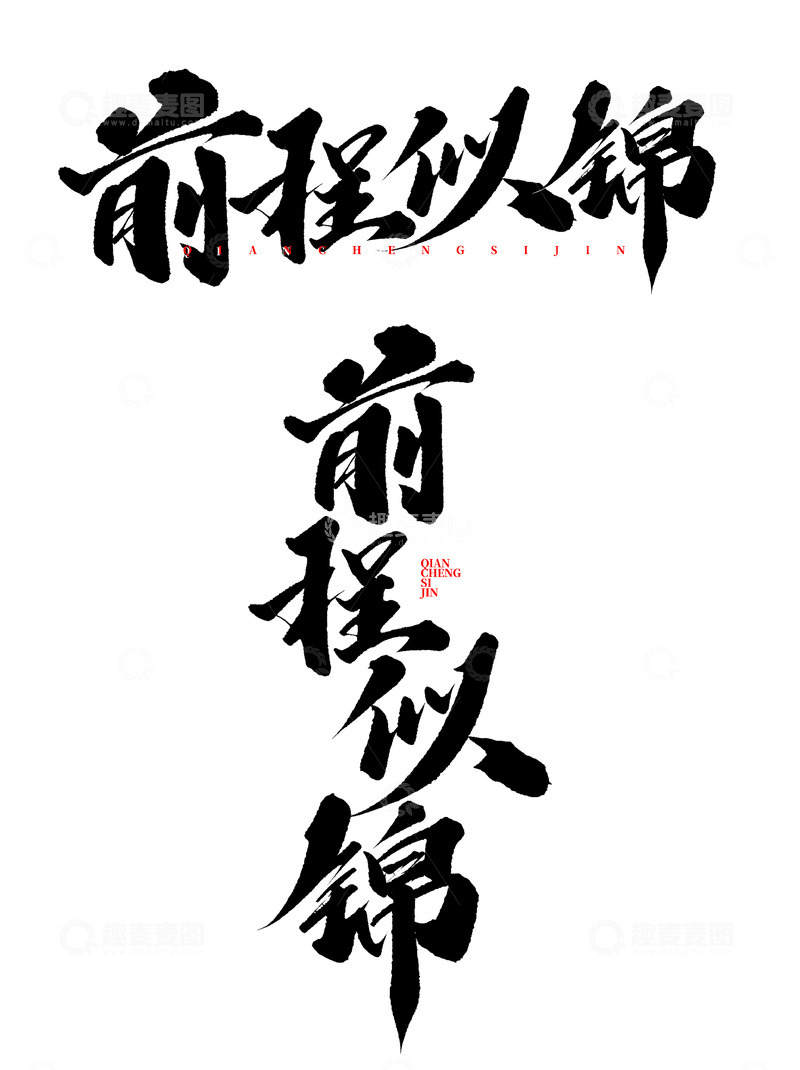 前程似锦
QIANCHENGSIJIN
前
程
似
锦
QIAN
CHENG
SI
JIN
趣麦麦图